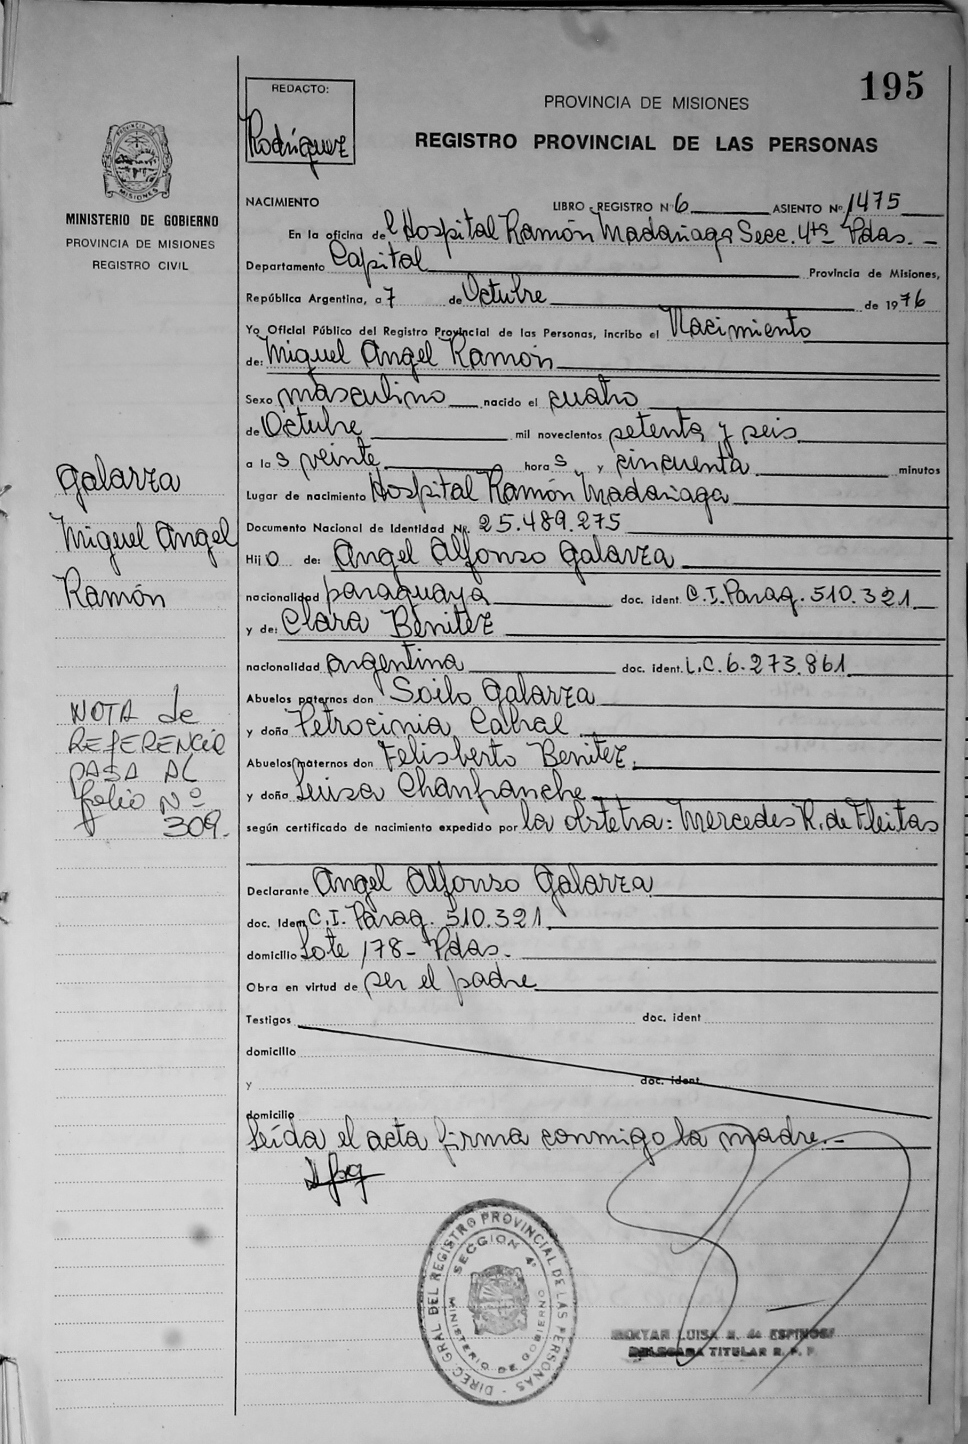 195
REDACTO:
Rodriguez
PROVINCIA DE MISIONES
REGISTRO PROVINCIAL DE LAS PERSONAS
MINISTERIO DE GOBIERNO
PROVINCIA DE MISIONES
REGISTRO CIVIL
NACIMIENTO LIBRO - REGISTRO Nº 6 ASIENTO Nº 1475
En la oficina del Hospital Ramón Madariaga Secc. 4ta Pdas. -
Departamento Capital Provincia de Misiones,
República Argentina, a 7 de Octubre de 1976
Yo Oficial Público del Registro Provincial de las Personas, incribo el Nacimiento
de: Miguel Angel Ramón
Sexo masculino nacido el cuatro
de Octubre mil novecientos setenta y seis
a las veinte horas y cincuenta minutos
Lugar de nacimiento Hospital Ramón Madariaga
Documento Nacional de Identidad Nr. 25.489.275
Hijo de: Angel Alfonso Galarza
nacionalidad paraguaya doc. ident. C.I. Parag. 510.321
y de: Clara Benitez
nacionalidad argentina doc. ident. L.C. 6.273.861
Abuelos paternos don Soilo Galarza
y doña Petrocinia Cabral
Abuelos maternos don Felisberto Benitez.
y doña Luisa Chanfranche
según certificado de nacimiento expedido por la obstetra: Mercedes R. de Fleitas
Declarante Angel Alfonso Galarza
doc. Idem C.I. Parag. 510.321
domicilio Lote 178 - Pdas.
Obra en virtud de ser el padre
Testigos doc. ident
domicilio
y doc. ident
domicilio
Leída el acta firma conmigo la madre. -
Galarza
Miguel Angel
Ramón
NOTA de
REFERENCIA
PASA AL
folio Nº
309.
DIREC. GRAL DEL REGISTRO PROVINCIAL DE LAS PERSONAS -
SECCION 4ª
MINISTERIO DE GOBIERNO
LUISA M. de ESPINOSA
DELEGADA TITULAR R. P. P.